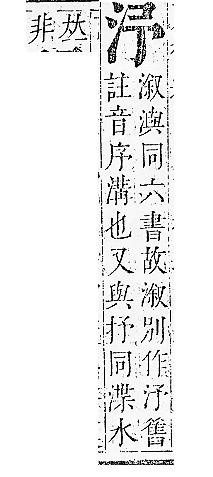 汿
溆㵰同六書故溆別作汿舊
註音序溝也又與抒同渫水
𠀤
非